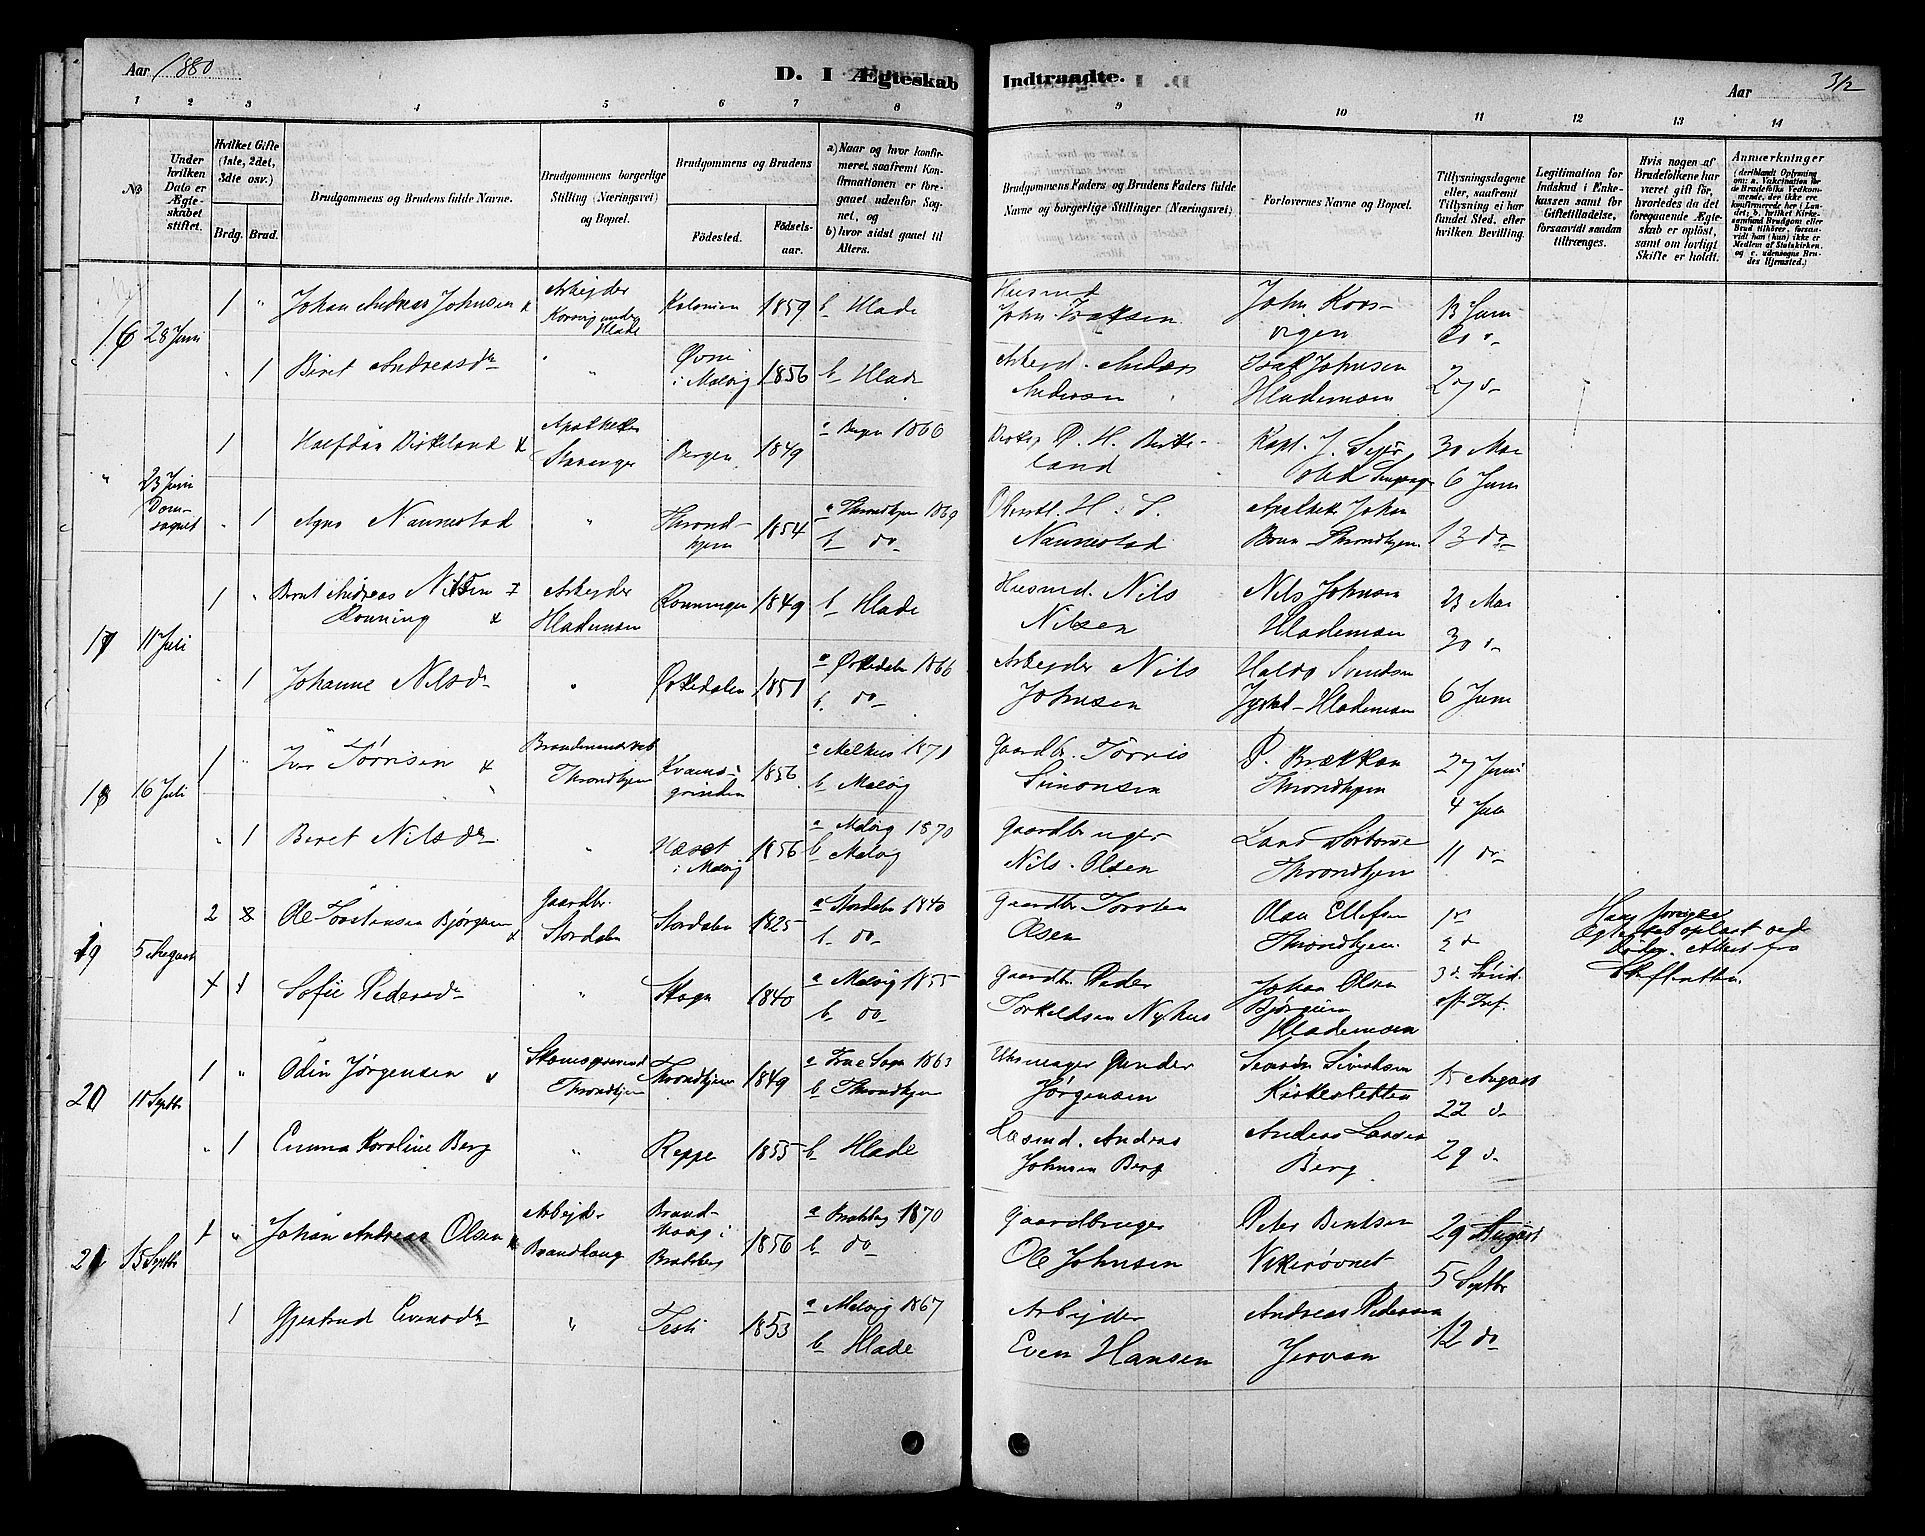 Aar 1880
D. I Ægteskab Indtraadte.
Aar
312
1 2 3 4 5 6 7 8 9 10 11 12 13 14
No
Under hvilken Dato er Ægteskabet stiftet.
Hvilket Gifte (1ste, 2det, 3die osv.)
Brdg. Brud.
Brudgommens og Brudens fulde Navne.
Brudgommens borgerlige Stilling (Næringsvei) og Bopæl.
Brudgommens og Brudens
Fødested.
Fødselsaar.
a) Naar og hvor konfirmeret, saafremt Konfirmationen er foregaaet udenfor Sognet, og
b) hvor sidst gaaet til Alters.
Brudgommens Faders og Brudens Faders fulde Navne og borgerlige Stillinger (Næringsvei)
Forlovernes Navne og Bopæl.
Tillysningsdagene eller, saafremt Tillysning ei har fundet Sted, efter hvilken Bevilling.
Legitimation for Indskud i Enkekassen samt for Giftetilladelse, forsaavidt saadan tiltrænges.
Hvis nogen af Brudefolkene har været gift før, hvorledes da det foregaaende Ægteskab er opløst, samt om lovligt Skifte er holdt.
Anmærkninger
16 28 Juni
1 " Johan Andreas Johnsen
Arbejder
under Hlade
Kolonien 1859 b Hlade
Husmd
John
John Kors-
vigen
13 Juni
20 "
" 1 Beret Andreasdr
"
Øvre
i Malvig 1856 b Hlade
Arbejd. Anders
Andersen
Isak Johnsen
Hlademoen
27 d
" 23 Juni
Domsognet
1 Halfdan Birkeland
Apotheker
Stavanger
Bergen 1849 a Bergen 1866
P. H. Birke-
land
Kapt. J.
30 Mai
6 Juni
" 1 Agnes Nannestad
"
Thrond-
hjem 1854 a Throndhjem 1869
b do
Oberstl. H. S.
Nannestad
Apothek. John
Brun Throndhjem
13 do
17 11 Juli
1 " Bernt Andreas Nilsen
Rønning
Arbejder
Hlademoen
Rønningen 1849 b Hlade
Husmd. Nils
Nilsen
Nils Johnsen
Hlademoen
23 Mai
30 "
" 1 Johanne Nilsdr
"
Ørkedalen 1851 a Ørkedalen 1866
b do
Arbejder Nils
Johnsen
Haldo Svendsen
Hlademoen
6 Juni
18 16 Juli
1 " Iver Tørrisen
Throndhjem
Kvams-
grinden 1856 a Melhus 1871
b Malvig
Gaardbr. Tørris
Simonsen
P. Brækkan
Throndhjem
27 Juni
4 Juli
" 1 Beret Nilsdr
"
i Malvig 1856 a Malvig 1870
b Malvig
Gaardbruger
Nils Olsen
Throndhjem
11 do
19 5 August
2 Ole Torstensen Bjørgum
Gaardbr.
Stordalen
Stordalen 1825 a Stordalen 1840
b do
Gaardbr. Torsten
Olsen
Olaus Ellefsen
Throndhjem
1ste
2 d
Hans forrige
Ægteskab opløst ved
Attest fra
Skifteretten
Sofie Pedersdr
"
1840 a Malvig 1855
b do
Gaardbr. Peder
Torkeldsen Nyhus
Johan Olsen
Bjørgum
Hlademoen
3 d
20 10 Septbr
1 " Odin Jørgensen
Throndhjem
Throndhjem 1849 a Frue Sogn 1863
b Throndhjem
Uhrmager Gunder
Jørgensen
Sivertsen
Kirkesletten
15 August
22 d
" 1 Emma Karoline Berg
"
Reppe 1855 b Hlade
Husmd. Andreas
Johnsen Berg
Anders Larsen
Berg
29 d
21 15 Septbr
1 " Johan Andreas Olsen
Arbejder
Brandhaug
Brand-
haug i
Bratsberg 1856 a Bratsberg 1870
b do
Gaardbruger
Ole Johnsen
Peter Bentsen
Vikerøvnet
29 August
5 Septbr
1 Gjertrud Evensdr
"
Testi 1853 a Malvig 1867
b Hlade
Arbejder
Even Hansen
Andreas Pedersen
Jervan
12 do